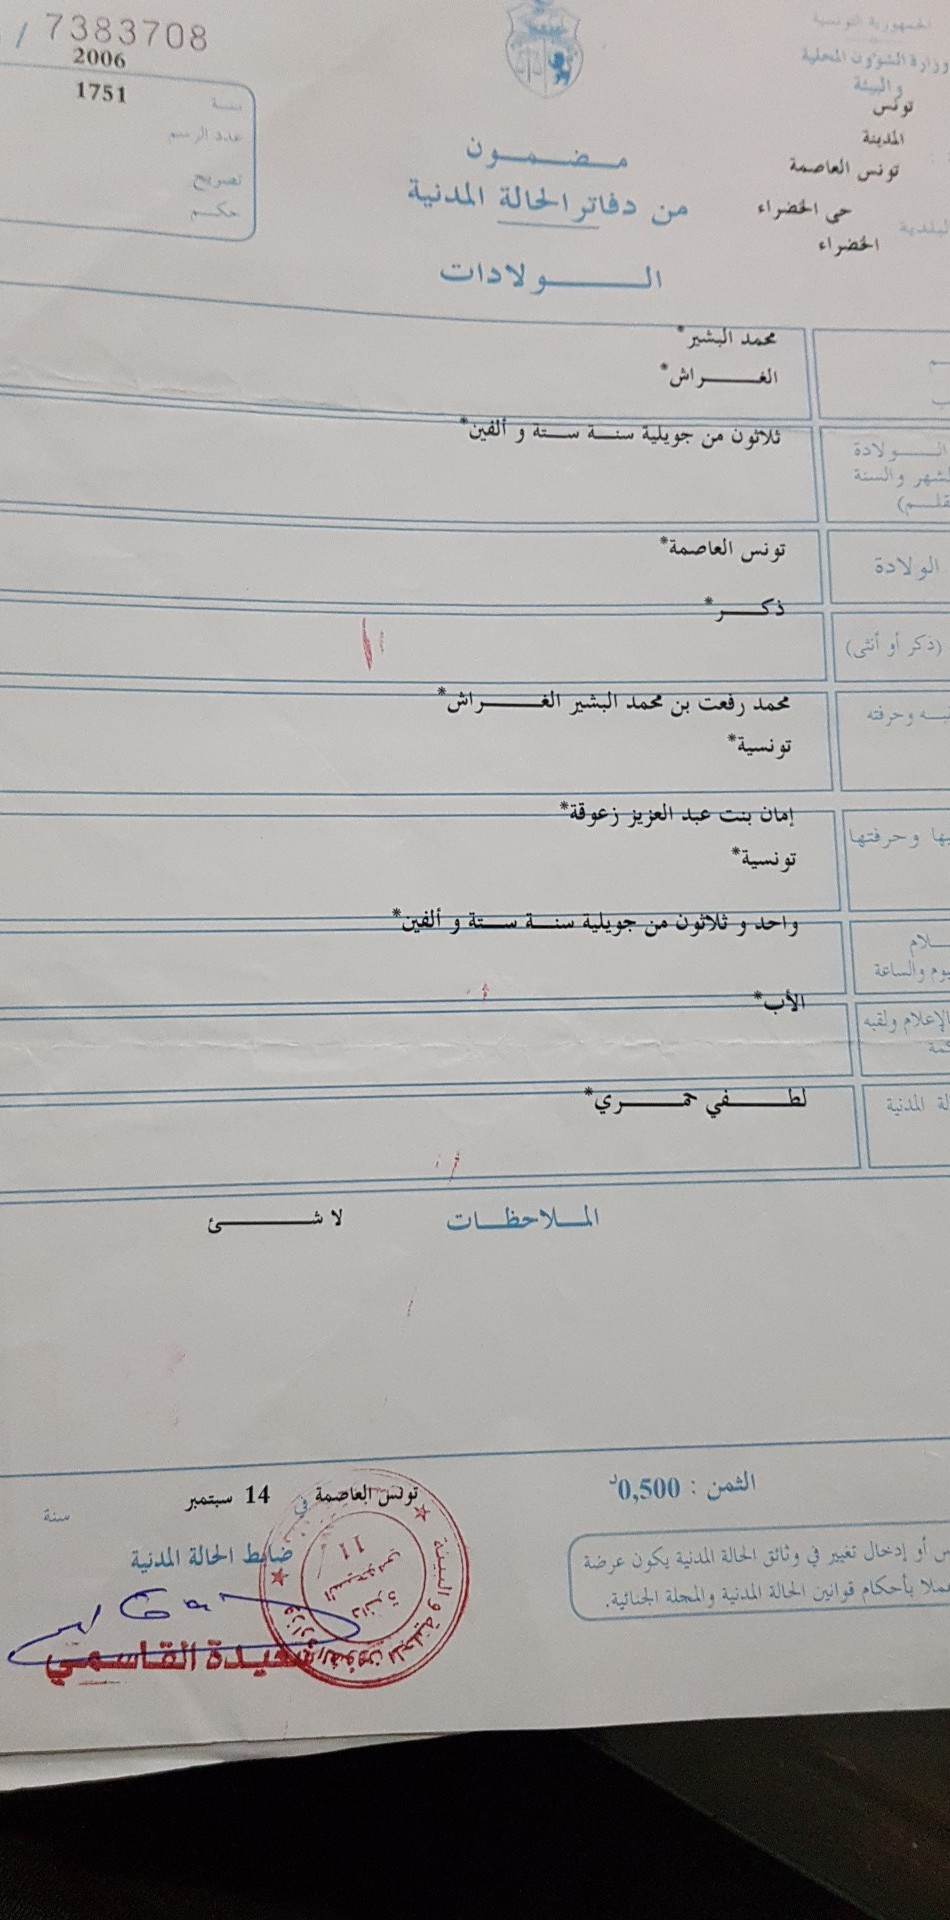 7383708 /
الجمهورية التونسية
وزارة الشؤون المحلية
والبيئة
تونس
المدينة
تونس العاصمة
حى الخضراء
البلدية
الخضراء
2006
سنة
1751
عدد الرسم
تصريح
حكم
مضمون
من دفاتر الحالة المدنية
الولادات
محمد البشير*
الغراش*
الولادة
ثلاثون من جويلية سنة ستة و ألفين*
الشهر والسنة
الولادة
تونس العاصمة*
ذكر*
(ذكر أو أنثى)
محمد رفعت بن محمد البشير الغراش*
وحرفته
تونسية*
إمان بنت عبد العزيز زعوقة*
وحرفتها
تونسية*
واحد و ثلاثون من جويلية سنة ستة و ألفين*
والساعة
الأب*
الإعلام ولقبه
لطفي حمري*
المدنية
الملاحظات
لا شئ
الثمن : 0,500د
تونس العاصمة في 14 سبتمبر سنة
ضابط الحالة المدنية
أو إدخال تغيير في وثائق الحالة المدنية يكون عرضة
عملا بأحكام قوانين الحالة المدنية والمجلة الجنائية.
القاسمي
دائرة
السيجومي
11